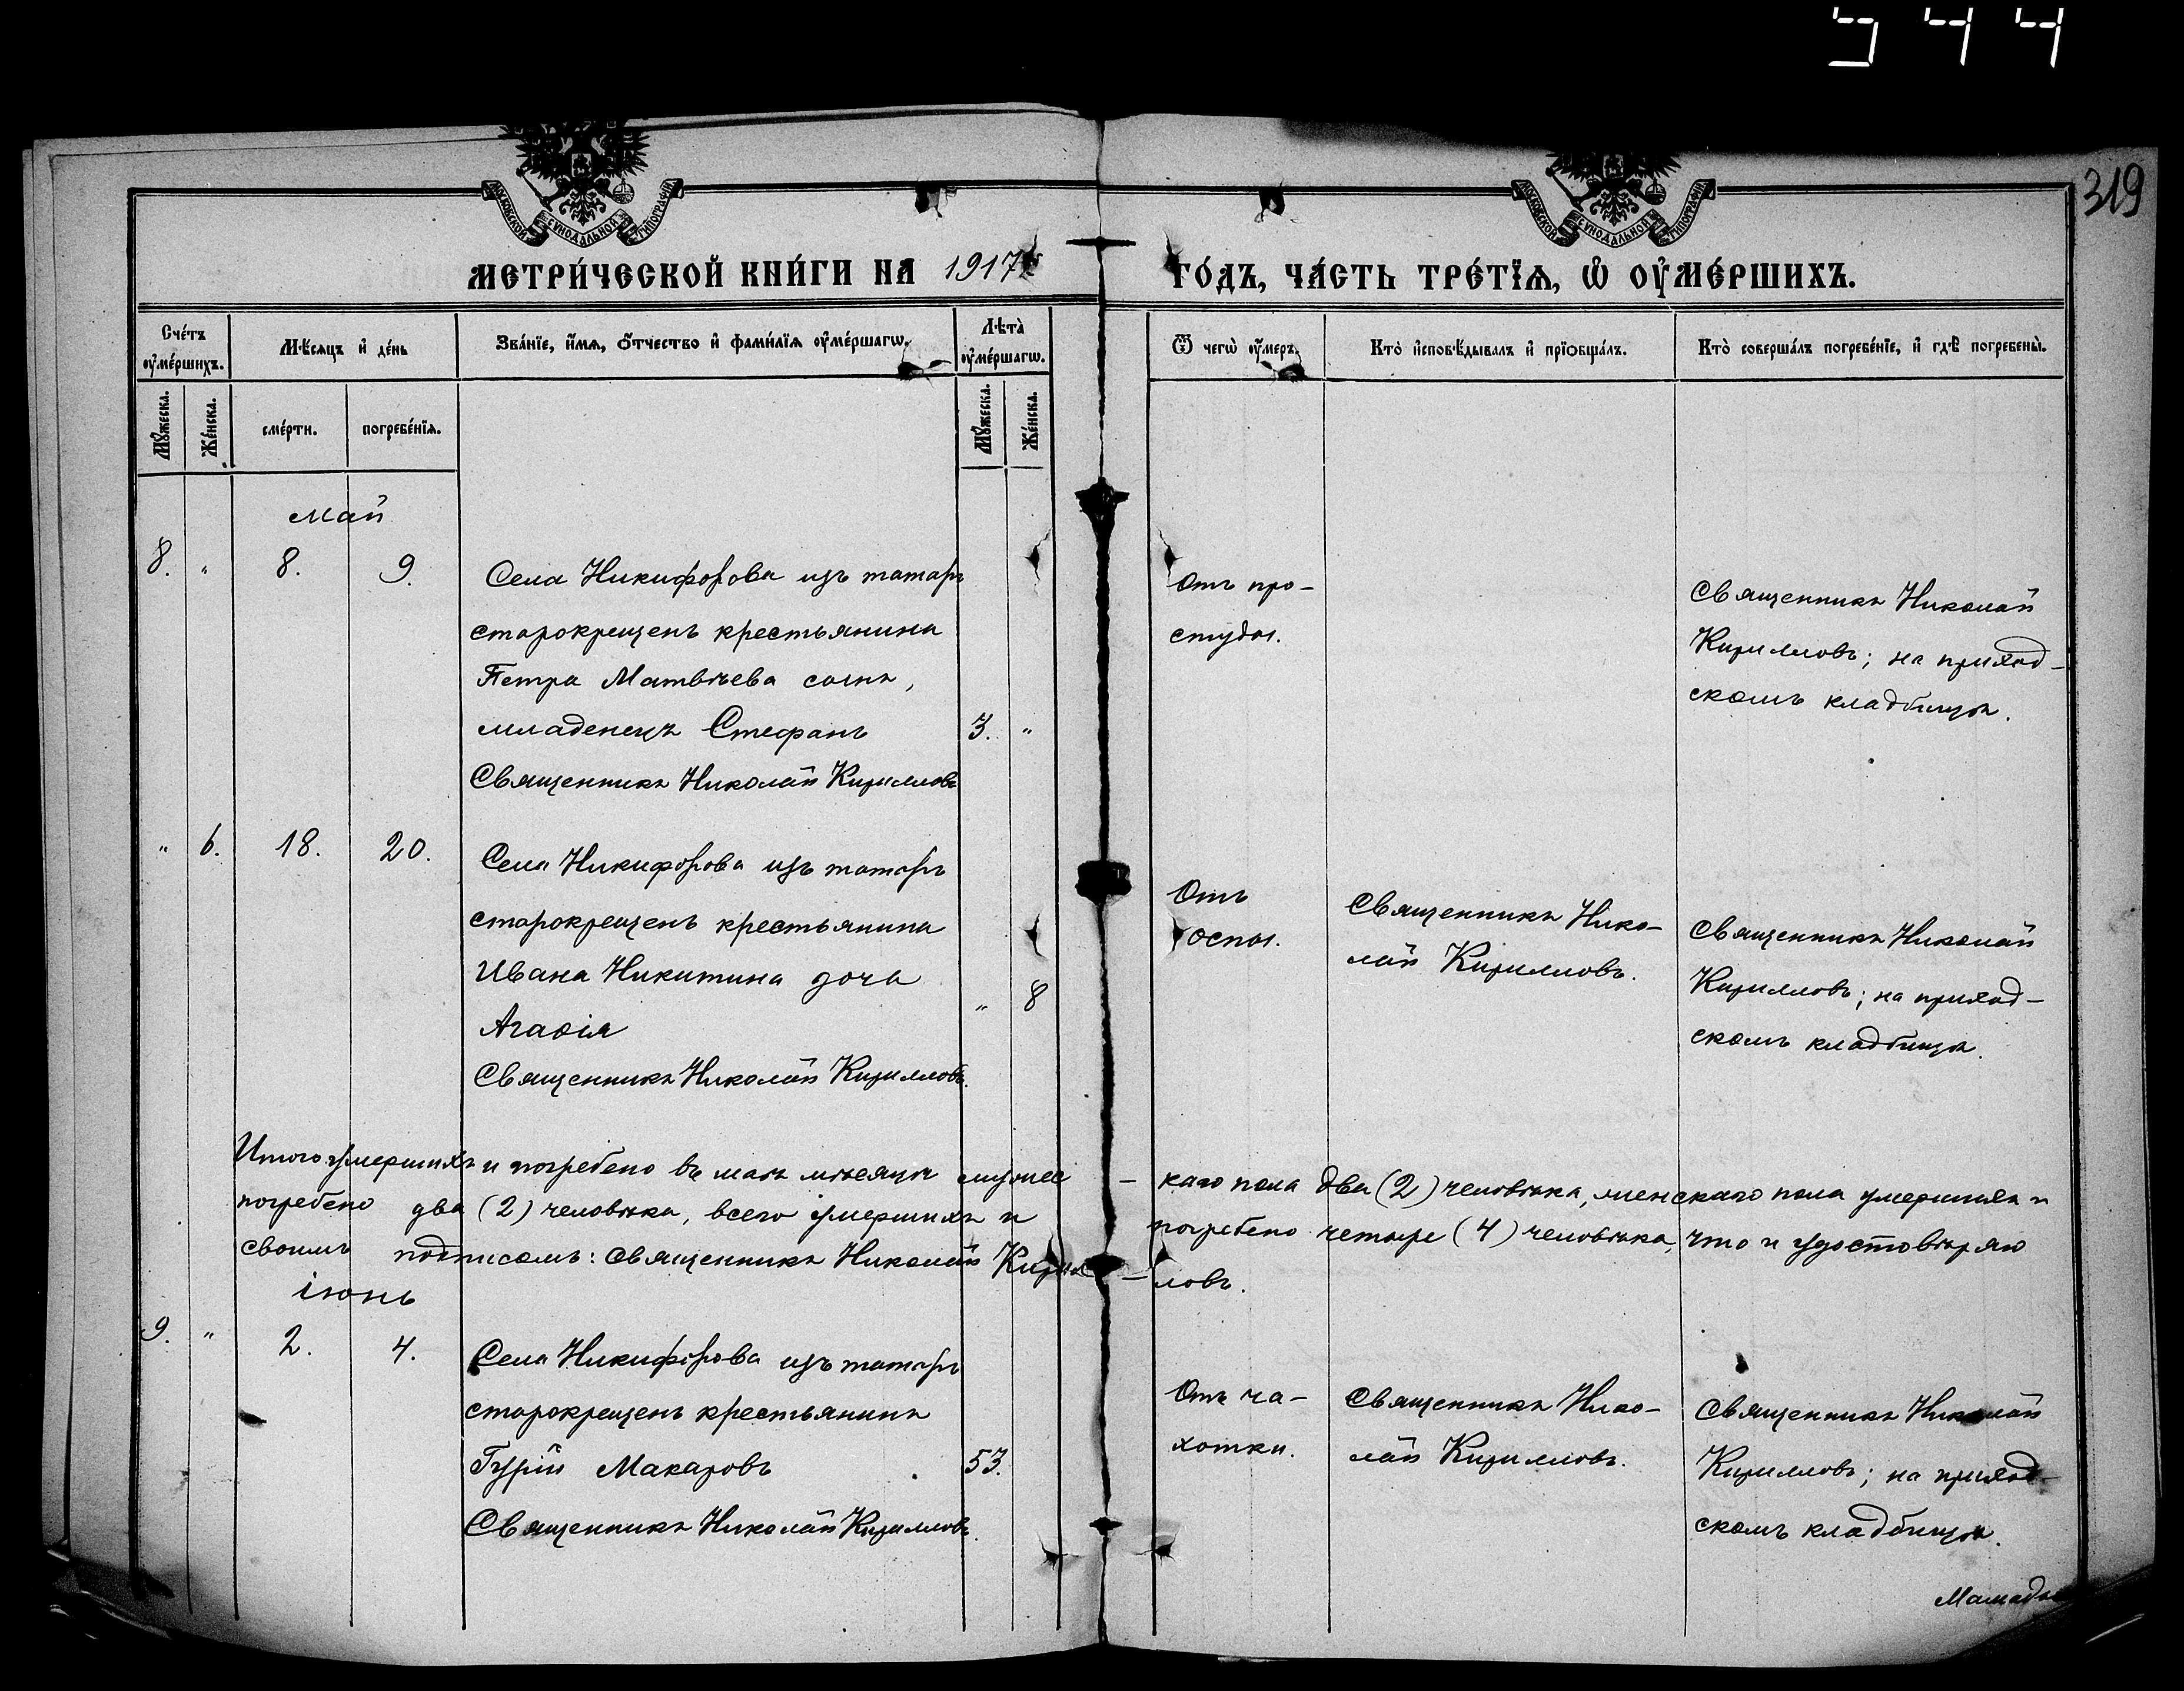 344
319
МОСКОВСКОЙ СѴНОДАЛЬНОЙ ТИПОГРАФІИ
МОСКОВСКОЙ СѴНОДАЛЬНОЙ ТИПОГРАФІИ
МЕТРИ́ЧЕСКОЙ КНИ́ГИ НА 1917 ГО́ДЪ, ЧА́СТЬ ТРЕ́ТЇѦ, Ѡ҆ ОУ҆МЕ́РШИХЪ.
Сче́тъ оу҆ме́ршихъ.
Мѣ́сѧцъ и҆ де́нь
Зва́нїе, и҆́мѧ, ѻ҆́тчество и҆ фами́лїѧ оу҆ме́ршагѡ.
Лѣ́та оу҆ме́ршагѡ.
Ѿ чегѡ̀ оу҆́меръ.
Кто̀ и҆сповѣ́дывалъ и҆ прїѡбща́лъ.
Кто̀ соверша́лъ погребе́нїе, и҆ гдѣ̀ погребены̀.
Мꙋ́жеска.
Же́нска.
сме́рти.
погребе́нїѧ.
Мꙋ́жеска.
Же́нска.
Май
8. " 8. 9. Села Никифорова изъ татаръ
старокрещенъ крестьянина
Петра Матвѣева сынъ,
младенецъ Стефанъ 3. "
Священникъ Николай Кирилловъ
Отъ про-
студы.
Священникъ Николай
Кирилловъ; на приход-
скомъ кладбищѣ.
" 6. 18. 20. Села Никифорова изъ татаръ
старокрещенъ крестьянина
Ивана Никитина дочь " 8
Агаѳія
Священникъ Николай Кирилловъ.
Отъ
оспы.
Священникъ Нико-
лай Кирилловъ.
Священникъ Николай
Кирилловъ; на приход-
скомъ кладбищѣ.
Итого умершихъ и погребено въ маѣ мѣсяцѣ мужес - каго пола два (2) человѣка, женскаго пола умершихъ и
погребено два (2) человѣка, всего умершихъ и погребено четыре (4) человѣка, что и удостовѣряю
своимъ подписомъ: Священникъ Николай Кирил - ловъ.
іюнь
9. " 2. 4. Села Никифорова изъ татаръ
старокрещенъ крестьянинъ
Гурій Макаровъ 53.
Священникъ Николай Кирилловъ.
Отъ ча-
хотки.
Священникъ Нико-
лай Кирилловъ.
Священникъ Николай
Кирилловъ; на приход-
скомъ кладбищѣ.